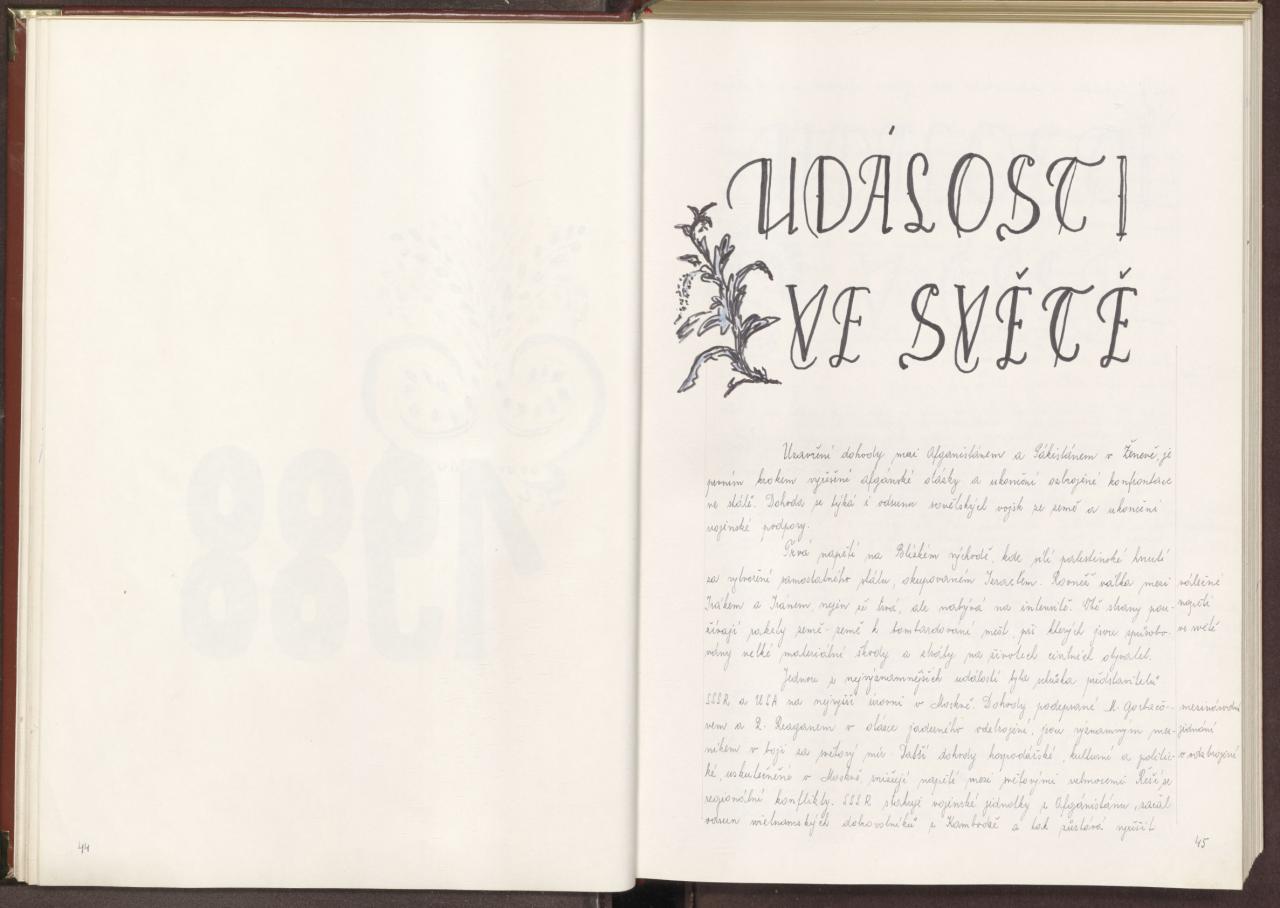 44
UDÁLOSTI
VE SVĚTĚ
Uzavření dohody mezi Afganistánem a Pákistánem v Ženevě, je
prvním krokem vyřešení afgánské otázky a ukončení ozbrojené konfrontace
ve státě. Dohoda se týká i odsunu sovětských vojsk ze země a ukončení
vojenské podpory.
Trvá napětí na Blízkém východě, kde sílí palestinské hnutí
za vytvoření samostatného státu, okupovaném Izraelem. Rovněž válka mezi
Irákem a Iránem, nejen že trvá, ale nabývá na intenzitě. Obě strany pou-
žívají rakety země-země k bombardování měst, při kterých jsou způsobo-
vány velké materiální škody a ztráty na životech civilních obyvatel.
válečné
napětí
ve světě
Jednou z nejvýznamnějších událostí byla schůzka představitelů
SSSR a USA na nejvyšší úrovni v Moskvě. Dohody podepsané M. Gorbačo-
vem a R. Reaganem v otázce jaderného odzbrojení, jsou významným mez-
níkem v boji za světový mír. Další dohody hospodářské, kulturní a politic-
ké, uskutečněné v Moskvě, snižují napětí mezi světovými velmocemi. Řeší se
regionální konflikty. SSSR stahuje vojenské jednotky z Afgánistánu, začal
odsun vietnamských dobrovolníků z Kambodže a tak zůstává vyřešit
mezinárodní
jednání
o odzbrojení
45